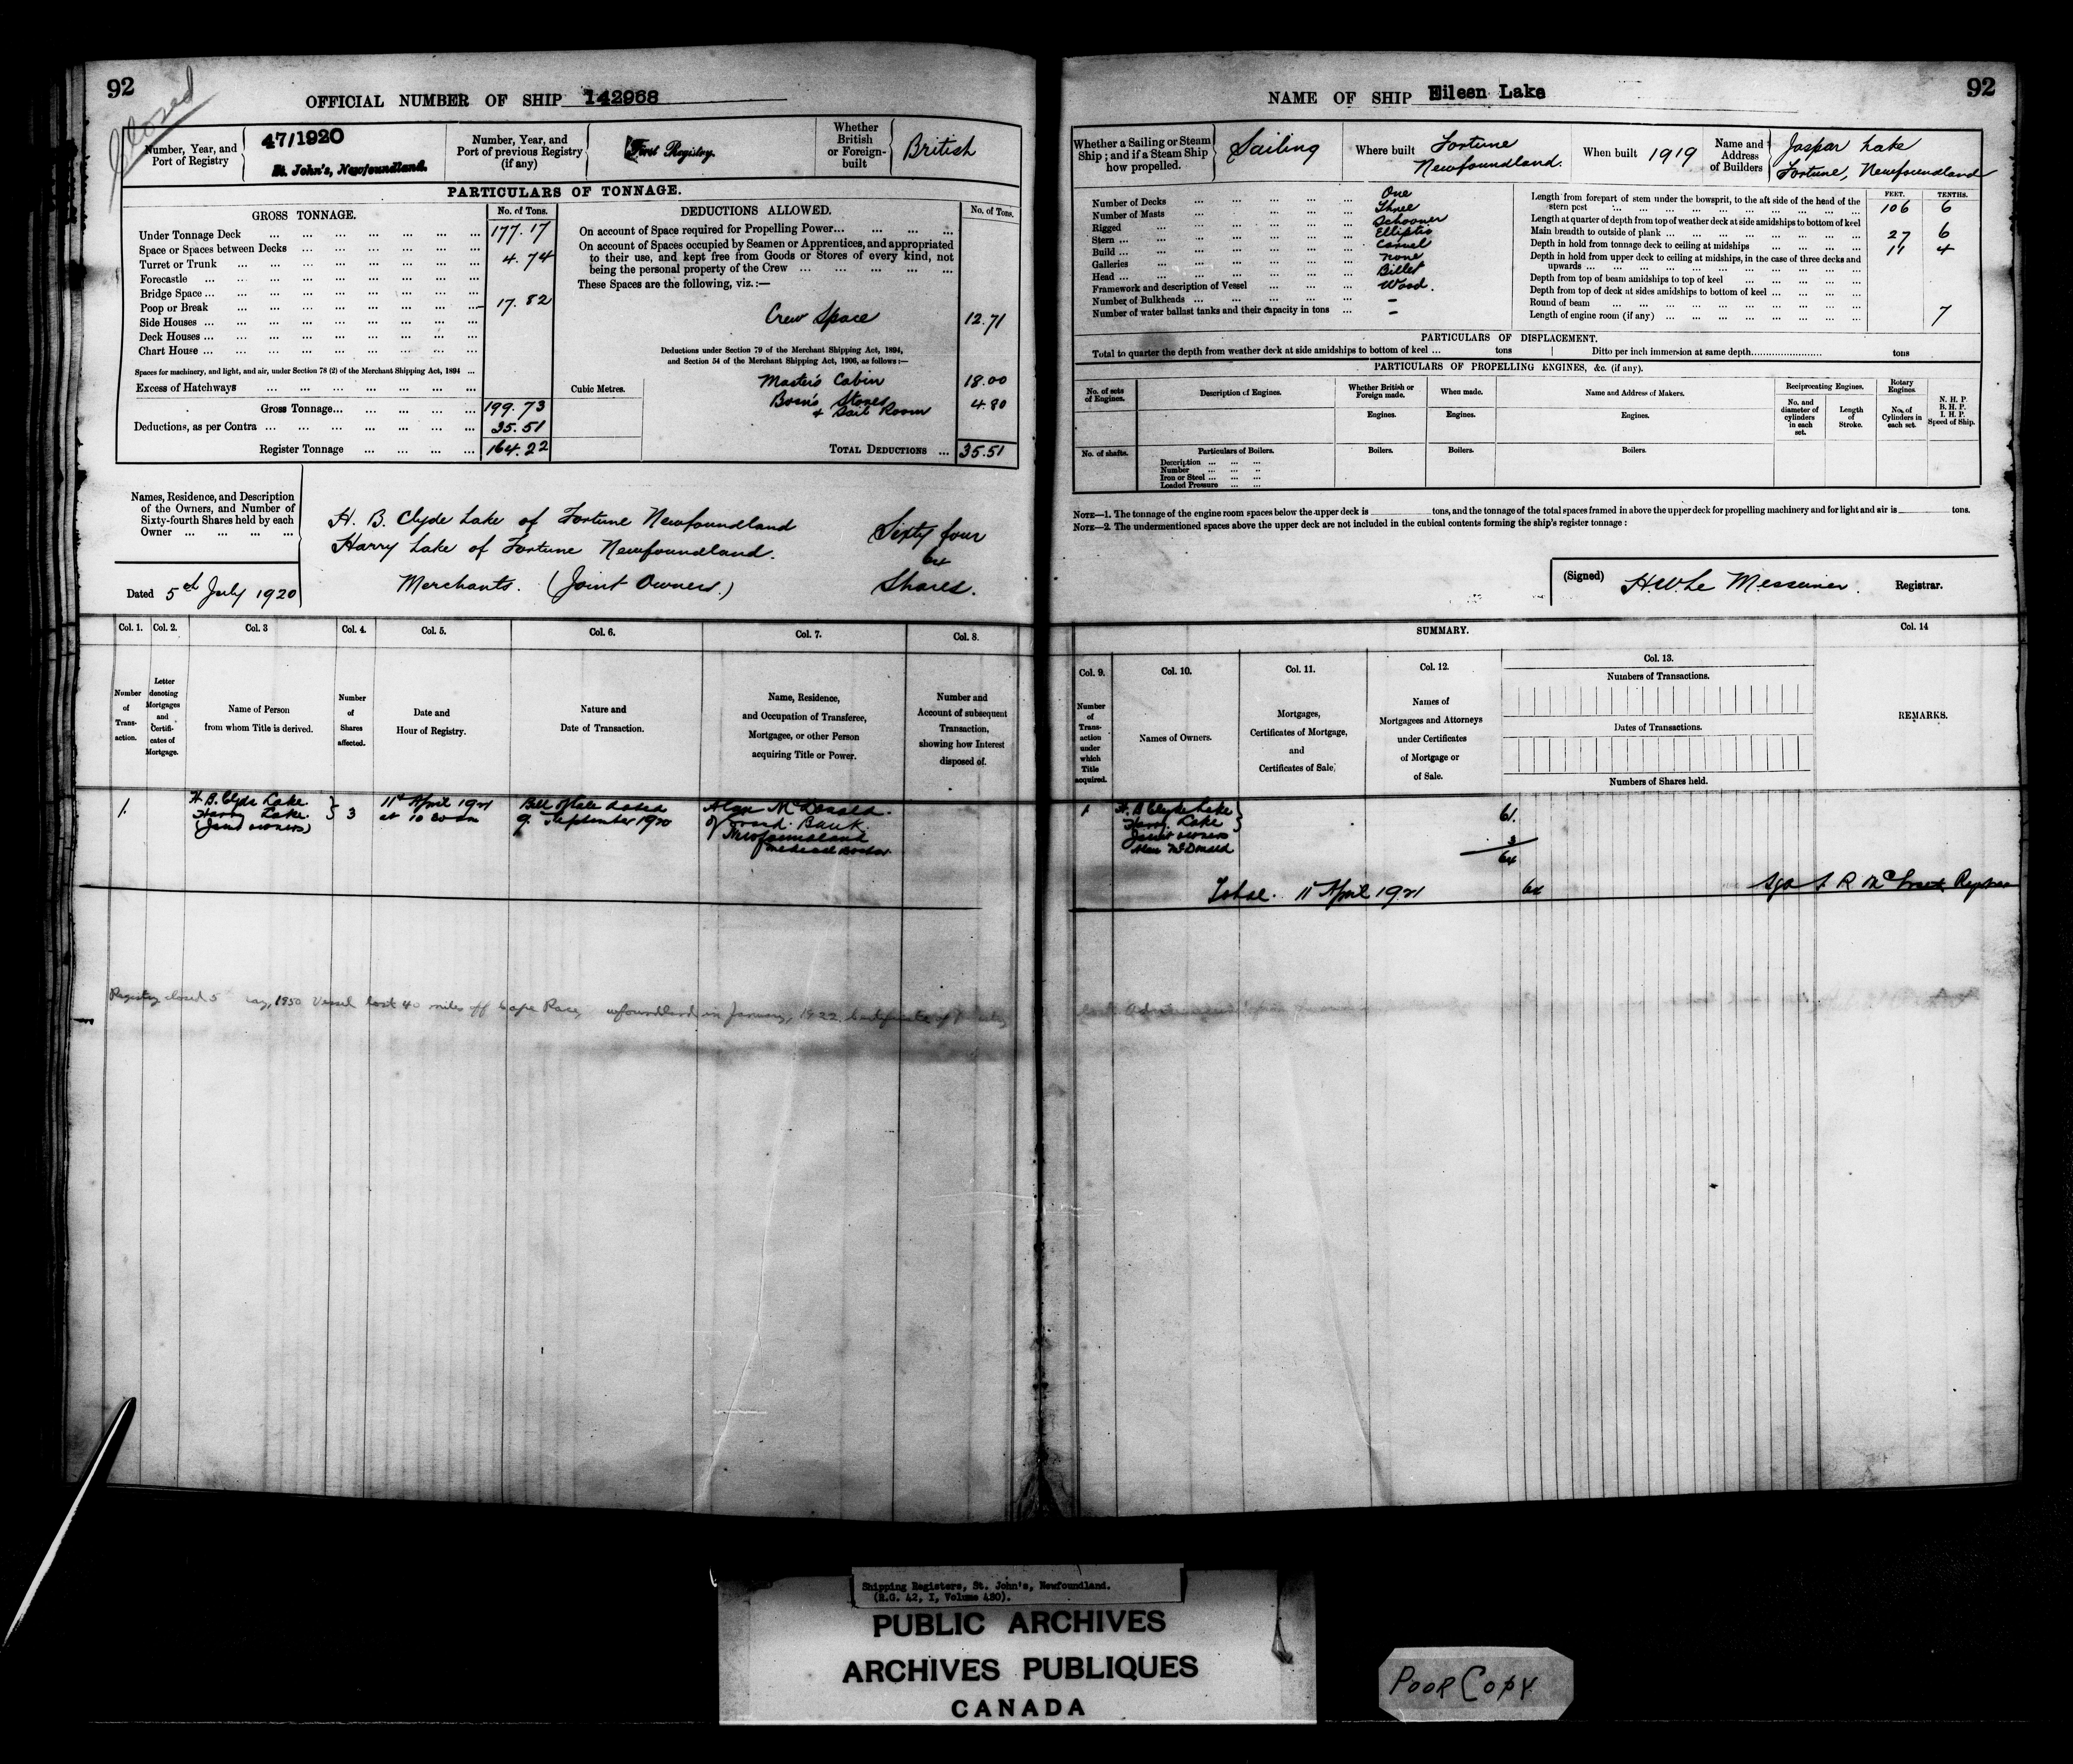 92
Closed
OFFICIAL NUMBER OF SHIP 142968
Number, Year, and Port of Registry
47/1920
St. John's, Newfoundland.
Number, Year, and Port of previous Registry (if any)
First Registry.
Whether British or Foreign-built
British
PARTICULARS OF TONNAGE.
GROSS TONNAGE.
No. of Tons.
Under Tonnage Deck 177.17
Space or Spaces between Decks
Turret or Trunk 4.74
Forecastle
Bridge Space
Poop or Break 17.82
Side Houses
Deck Houses
Chart House
Spaces for machinery, and light, and air, under Section 78 (2) of the Merchant Shipping Act, 1894
Excess of Hatchways
Gross Tonnage 199.73
Deductions, as per Contra 35.51
Register Tonnage 164.22
DEDUCTIONS ALLOWED.
No. of Tons.
On account of Space required for Propelling Power
On account of Spaces occupied by Seamen or Apprentices, and appropriated
to their use, and kept free from Goods or Stores of every kind, not
being the personal property of the Crew
These Spaces are the following, viz.:—
Crew Space 12.71
Deductions under Section 79 of the Merchant Shipping Act, 1894,
and Section 54 of the Merchant Shipping Act, 1906, as follows:—
Cubic Metres.
Master's Cabin 18.00
Bosn's Stores
& Sail Room 4.80
TOTAL DEDUCTIONS 35.51
Names, Residence, and Description
of the Owners, and Number of
Sixty-fourth Shares held by each
Owner
H. B. Clyde Lake of Fortune Newfoundland
Harry Lake of Fortune Newfoundland.
Merchants. (Joint Owners.)
Sixty four
64
Shares.
Dated 5th July 1920
Col. 1. Col. 2. Col. 3 Col. 4. Col. 5. Col. 6. Col. 7. Col. 8.
Number of Transaction.
Letter denoting Mortgages and Certificates of Mortgage.
Name of Person
from whom Title is derived.
Number of Shares affected.
Date and
Hour of Registry.
Nature and
Date of Transaction.
Name, Residence,
and Occupation of Transferee,
Mortgagee, or other Person
acquiring Title or Power.
Number and
Account of subsequent
Transaction,
showing how Interest
disposed of.
1.
H B. Clyde Lake
Harry Lake.
(Joint owners)
3
11th April 1921
at 10 30 am
Bill of Sale dated
9. September 1920
Alan McDonald.
of Grand Bank.
Newfoundland
Medical Doctor
Registry closed 5 1950 Vessel lost 40 miles off Cape Race, in January, 1922.
92
NAME OF SHIP Eileen Lake
Whether a Sailing or Steam Ship; and if a Steam Ship how propelled.
Sailing
Where built
Fortune
Newfoundland.
When built 1919
Name and Address of Builders
Jaspar Lake
Fortune, Newfoundland
Number of Decks One
Number of Masts Three
Rigged Schooner
Stern Elliptic
Build Carvel
Galleries None
Head Billet
Framework and description of Vessel Wood.
Number of Bulkheads –
Number of water ballast tanks and their capacity in tons –
FEET. TENTHS.
Length from forepart of stem under the bowsprit, to the aft side of the head of the
stern post 106 6
Length at quarter of depth from top of weather deck at side amidships to bottom of keel
Main breadth to outside of plank 27 6
Depth in hold from tonnage deck to ceiling at midships 11 4
Depth in hold from upper deck to ceiling at midships, in the case of three decks and
upwards
Depth from top of beam amidships to top of keel
Depth from top of deck at sides amidships to bottom of keel
Round of beam 7
Length of engine room (if any)
PARTICULARS OF DISPLACEMENT.
Total to quarter the depth from weather deck at side amidships to bottom of keel ... tons Ditto per inch immersion at same depth tons
PARTICULARS OF PROPELLING ENGINES, &c. (if any).
No. of sets of Engines.
Description of Engines.
Whether British or Foreign made.
When made.
Name and Address of Makers.
Reciprocating Engines.
Rotary Engines.
No. and diameter of cylinders in each set.
Length of Stroke.
No. of Cylinders in each set.
N. H. P.
B. H. P.
I. H. P.
Speed of Ship.
Engines. Engines. Engines.
No. of shafts.
Particulars of Boilers.
Boilers. Boilers. Boilers.
Description
Number
Iron or Steel
Loaded Pressure
NOTE—1. The tonnage of the engine room spaces below the upper deck is tons, and the tonnage of the total spaces framed in above the upper deck for propelling machinery and for light and air is tons.
NOTE—2. The undermentioned spaces above the upper deck are not included in the cubical contents forming the ship's register tonnage:
(Signed) H.W. Le Messurier. Registrar.
SUMMARY.
Col. 14
Col. 9. Col. 10. Col. 11. Col. 12. Col. 13.
Number of Transaction under which Title acquired.
Names of Owners.
Mortgages,
Certificates of Mortgage,
and
Certificates of Sale.
Names of
Mortgagees and Attorneys
under Certificates
of Mortgage or
of Sale.
Numbers of Transactions.
Dates of Transactions.
Numbers of Shares held.
REMARKS.
1
H. B Clyde Lake
Harry Lake
Joint owners
61.
Alan McDonald
3
64
Total. 11 April 1921 64
Registrar
Shipping Registers, St. John's, Newfoundland.
(R.G. 42, I, Volume 480).
PUBLIC ARCHIVES
ARCHIVES PUBLIQUES
CANADA
POOR COPY